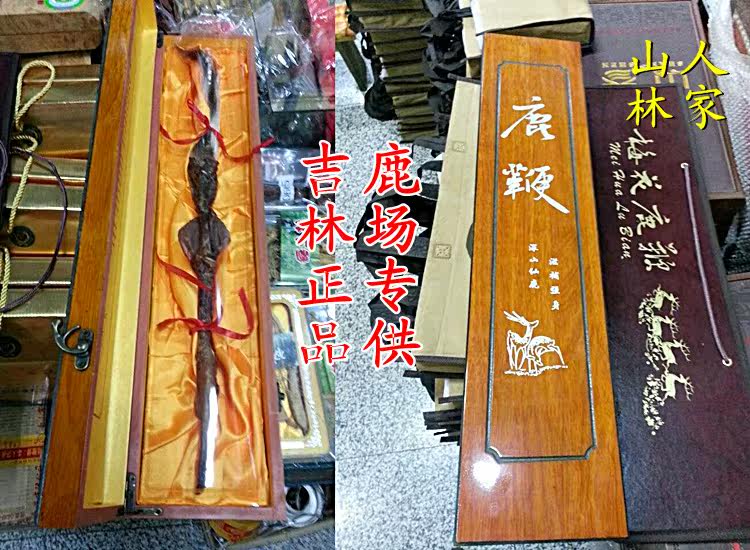 山林
人家
鹿场专供
吉林正品
鹿鞭
深山仙鹿
梅花鹿鞭
Mei Hua Lu Bian